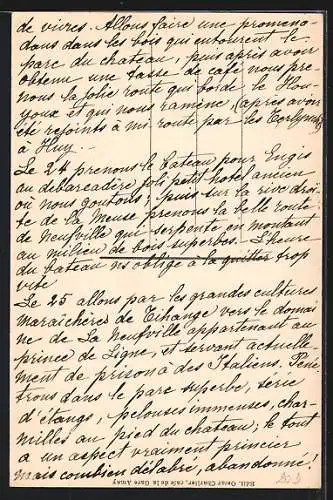 de vivres. Allons faire une promena-
dans dans les bois qui entourent le
parc du chateau, puis après avoir
obtenu une tasse de café nous pre-
nons la jolie route qui borde le Hou-
youx et qui nous ramène, (après avoir
été rejoints à mi route par les
à Huy.
Le 24 prenons le bateau pour Engis
au débarcadère joli petit hotel ancien
où nous goutons; puis sur la rive droi-
te de la Meuse prenons la belle route
de Neufville qui serpente en montant
au milieu de bois superbes. L'heure
du bateau ns oblige à la quitter trop
vite
Le 25 allons par les grandes cultures
maraîchères de Tihange vers le domai-
ne de La Neufville appartenant au
prince de Ligne, et servant actuelle-
ment de prison à des Italiens. Péné-
trons dans le parc superbe, série
d'étangs, pelouses immenses, char-
milles au pied du chateau; le tout
a un aspect vraiment princier
mais combien délabré, abandonné!
Edit. Oscar Chartier, café de la Gare Amay